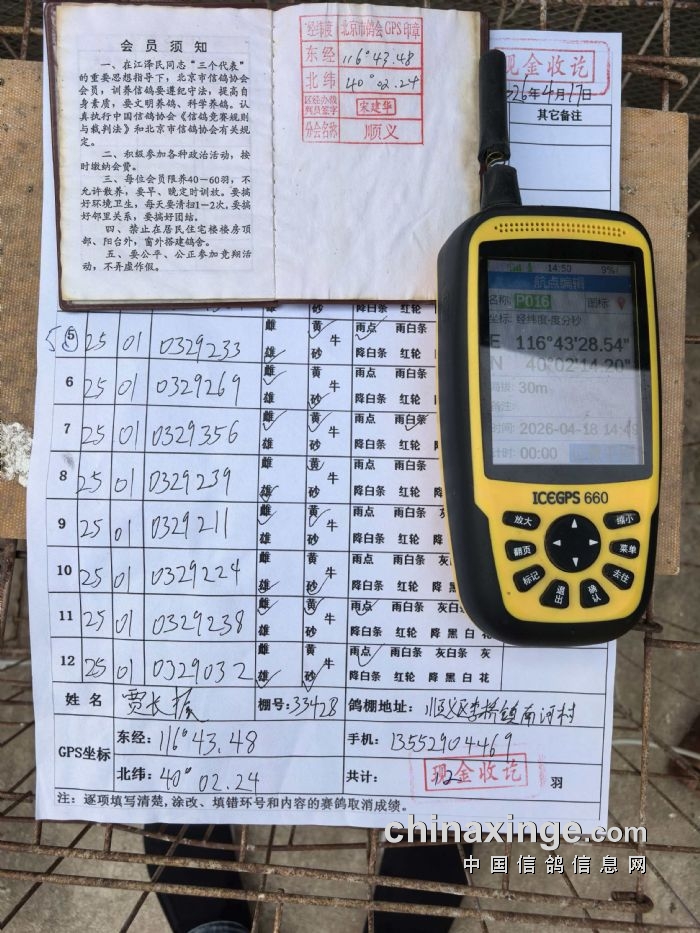 会员须知
一、在江泽民同志“三个代表”
的重要思想指导下，北京市信鸽协会
会员，训养信鸽要遵纪守法，提高自
身素质，要文明养鸽、科学养鸽。认
真执行中国信鸽协会《信鸽竞赛规则
与裁判法》和北京市信鸽协会有关规
定。
二、积极参加各种政治活动，按
时缴纳会费。
三、每位会员限养40—60羽，不
允许散养，要早、晚定时训放。要搞
好环境卫生，每天要清扫1—2次。要搞
好邻里关系，要搞好团结。
四、禁止在居民住宅楼楼房顶
部、阳台外，窗外搭建鸽舍。
五、要公平、公正参加竞翔活
动，不弄虚作假。
经纬度 北京市鸽会GPS印章
东经 116°43.48
北纬 40°02.24
宋建华
分会名称 顺义
现金收讫
2026年4月17日
其它备注
5 25 01 0329233 雌 黄 牛 雨点 雨白条
雄 砂 降白条 红轮
6 25 01 0329269 雌 黄 牛 雨点 雨白条
雄 砂 降白条 红轮
7 25 01 0329356 雌 黄 牛 雨点 雨白条
雄 砂 降白条 红轮
8 25 01 0329239 雌 黄 牛 雨点 雨白条
雄 砂 降白条 红轮 降
9 25 01 0329211 雌 黄 牛 雨点 雨白条 灰
雄 砂 降白条 红轮 降
10 25 01 0329224 雌 黄 牛 雨点 雨白条 灰白
雄 砂 降白条 红轮 降 黑
11 25 01 0329238 雌 黄 牛 雨点 雨白条 灰白条
雄 砂 降白条 红轮 降 黑 白 花
12 25 01 0329032 雌 黄 牛 雨点 雨白条 灰白条 灰
雄 砂 降白条 红轮 降 黑 白 花
姓名 贾长振 棚号：33428 鸽棚地址：顺义区李桥镇南河村
GPS坐标 东经：116°43.48 手机：13552904469
北纬：40°02.24 共计： 羽
现金收讫
注：逐项填写清楚，涂改、填错环号和内容的赛鸽取消成绩。
14:50 9%
航点编辑
名称: P016 图标:
坐标: 经纬度-度分秒
E 116°43'28.54"
N 40°02'14.20"
30m
时间: 2026-04-18 14:49
计时: 00:00
ICEGPS 660
放大 缩小
翻页 菜单
标记 退出 确认 去往
chinaxinge.com
中国信鸽信息网